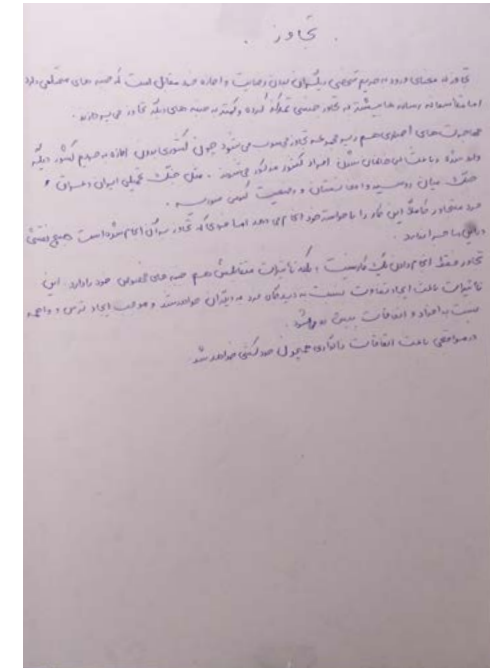 . تجاوز .
تجاوز به معنای ورود به حریم شخصی دیگران بدون رضایت و اجازه فرد مقابل است که جنبه های مختلفی دارد
اما متأسفانه رسانه ها بیشتر به تجاوز جنسی تمرکز کرده و کمتر به جنبه های دیگه تجاوز می پردازند.
مهاجرت های اجباری هم زیر مجموعه تجاوز محسوب می شود چون کشوری بدون اجازه به حریم کشور دیگر
وارد شده و باعث این جابجایی افراد کشور مذکور می شوند. مثل جنگ تحمیلی ایران و عراق و
جنگ میان روسیه و افغانستان و وضعیت کنونی سوریه.
فرد متجاوز کاملاً این کار را با خواسته خود انجام می دهد اما فردی که تجاوز برای انجام شده است هیچ نقشی
در این ماجرا ندارد.
تجاوز فقط انجام دادن یک کار نیست، بلکه تاثیرات متقابلش هم جنبه های خصوصی خود را دارد. این
تاثیرات باعث ایجاد تفاوت نسبت به دیدگاه فرد به دیگران خواهد شد و موجب ایجاد ترس و واهمه
نسبت به افراد و اتفاقات
در مواقعی باعث اتفاقات ناگواری همچون خودکشی خواهد شد